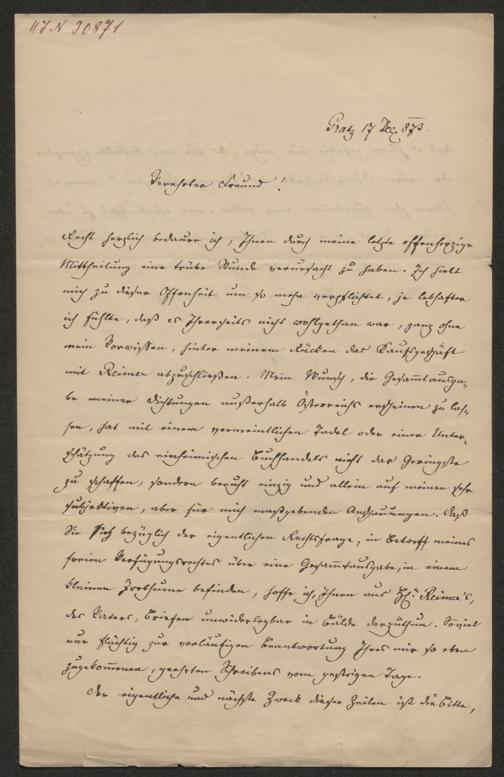 HJN 30871
Gratz 17 Dec 873.
Verehrter Freund!
Recht herzlich bedaure ich, Ihnen durch meine letzte offenherzige
Mittheilung eine trübe Stunde verursacht zu haben. Ich hielt
mich zu dieser Offenheit um so mehr verpflichtet, je lebhafter
ich fühlte, daß es Ihrerseits nicht wohlgethan war, ganz ohne
mein Vorwissen, hinter meinem Rücken das Kaufgeschäft
mit Reimer abzuschließen. Mein Wunsch, die Gesammtausga-
be meiner Dichtungen außerhalb Österreichs erscheinen zu las-
sen, hat mit einem vermeintlichen Tadel oder einer Unter-
schätzung des einheimischen Buchhandels nicht das Geringste
zu schaffen, sondern beruht einzig und allein auf meinen sehr
subjektiven, aber für mich maßgebenden Anschauungen. Daß
Sie sich bezüglich der eigentlichen Rechtsfrage, in Betreff meines
freien Verfügungsrechtes über eine Gesammtausgabe, in einem
kleinen Irrthume befinden, hoffe ich, Ihnen aus Hr. Reimer's,
des Vaters, Briefen unwiderlegbar in Bälde darzuthun. Soviel
nur flüchtig zur vorläufigen Beantwortung Ihres mir so eben
zugekommenen, geehrten Schreibens vom gestrigen Tage.
Der eigentliche und nächste Zweck dieser Zeilen ist die Bitte,